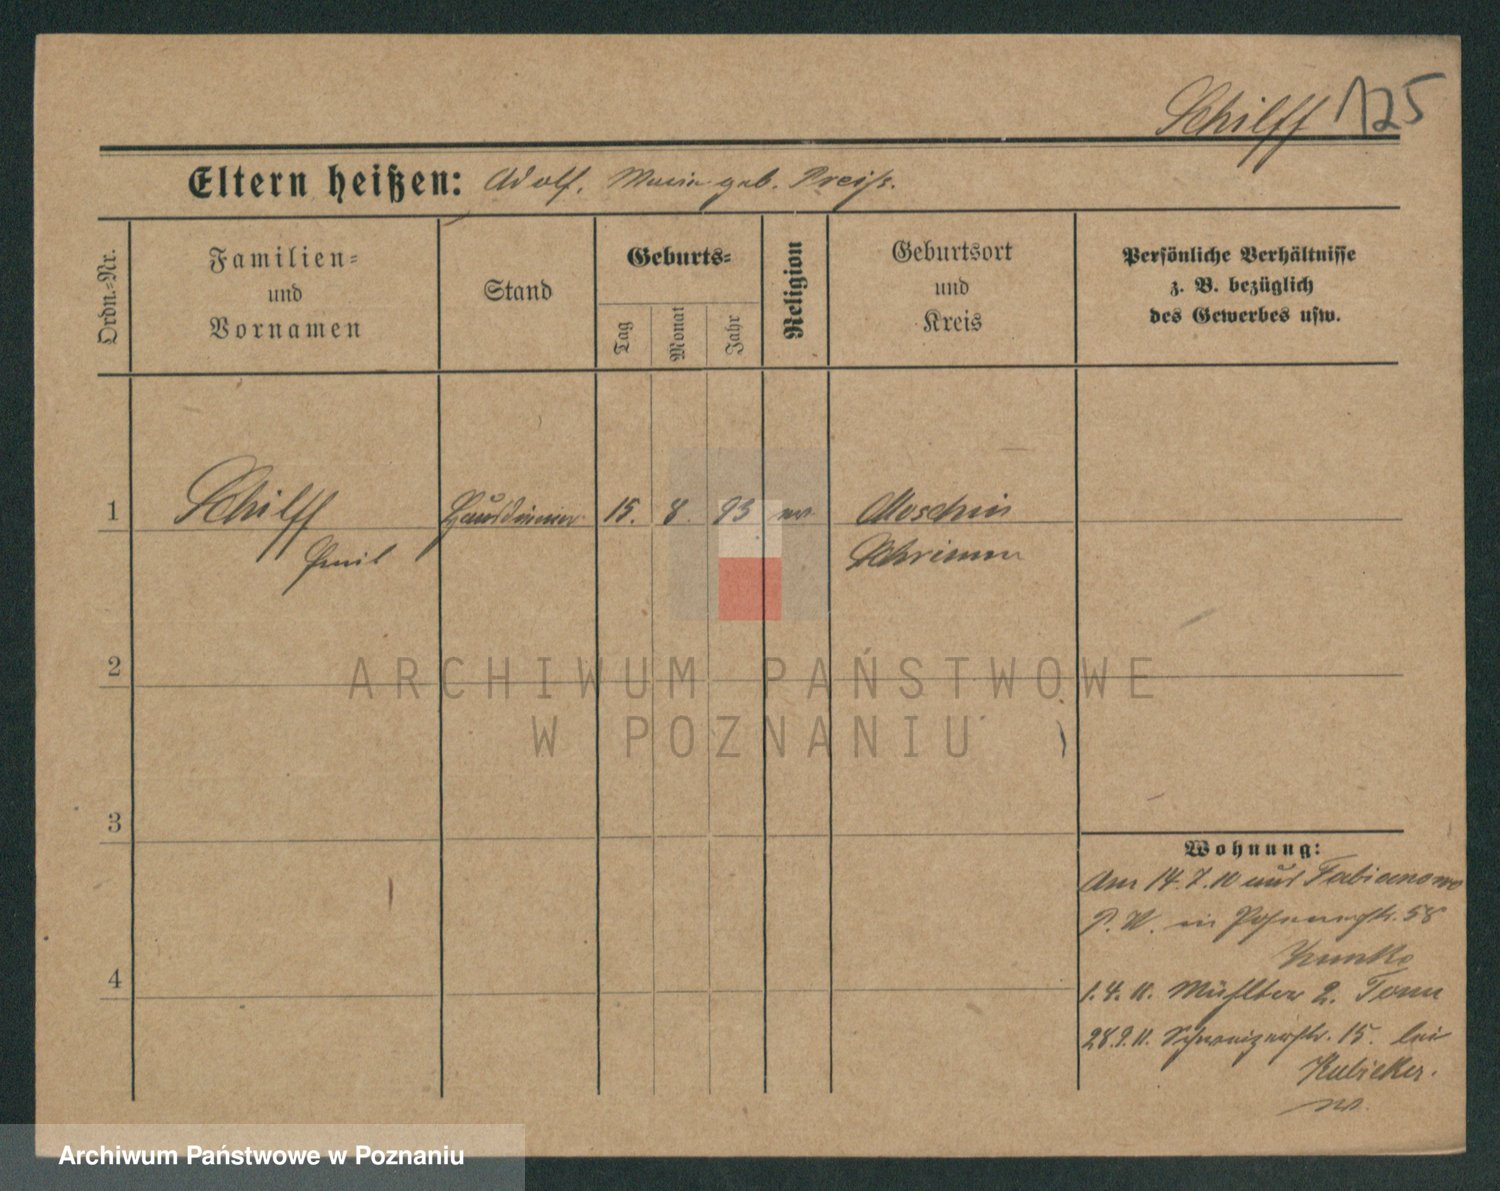 Schilff 125
Eltern heißen: Adolf. Maria geb. Preiß.
Ordn.-Nr.
Familien-
und
Vornamen
Stand
Geburts-
Tag
Monat
Jahr
Religion
Geburtsort
und
Kreis
Persönliche Verhältnisse
z. B. bezüglich
des Gewerbes usw.
1 Schilff Hausdiener 15. 8. 93 ev. Moschin
Emil Schrimm
2
3
4
Wohnung:
Am 14.7.10 aus Fabianowo
P. W. in Posenerstr. 58
1.4.11. Mühltor 2. Tonn
28.9.11. Schweizerstr. 15. bei
Kubicker.
ARCHIWUM PAŃSTWOWE
W POZNANIU
Archiwum Państwowe w Poznaniu